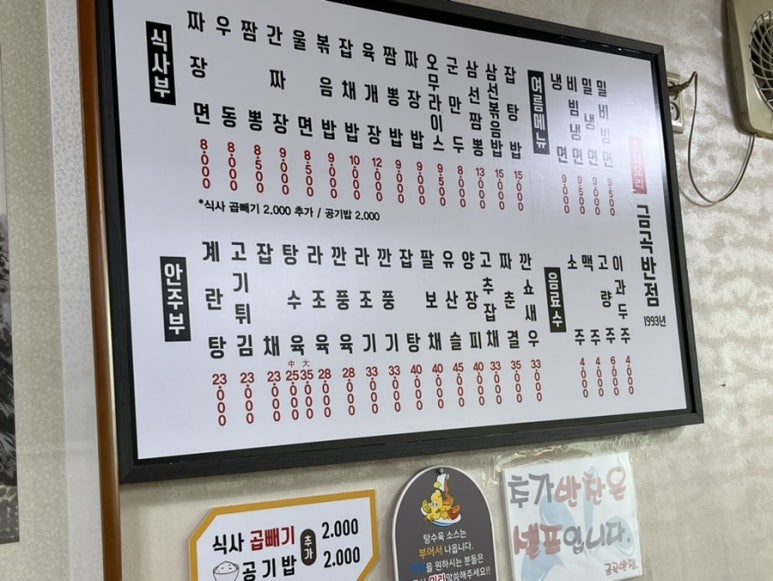 식사부
짜장면 8,000
우동 8,000
짬뽕 8,500
간짜장 9,000
울면 8,500
볶음밥 9,000
잡채밥 10,000
육개장 12,000
짬뽕밥 9,000
짜장밥 9,000
오무라이스 9,500
군만두 8,000
삼선짬뽕 13,000
삼선볶음밥 15,000
잡탕밥 15,000
*식사 곱빼기 2,000 추가 / 공기밥 2,000
여름메뉴
냉면 9,000
비빔냉면 9,500
밀냉면 9,000
밀비빔면 9,500
금곡반점
1993년
안주부
계란탕 23,000
고기튀김 23,000
잡채 23,000
탕수육 中 25,000 大 35,000
라조육 28,000
깐풍육 28,000
라조기 33,000
깐풍기 33,000
잡탕 40,000
팔보채 40,000
유산슬 45,000
양장피 40,000
고추잡채 33,000
짜춘결 35,000
깐쇼새우 33,000
음료수
소주 4,000
맥주 4,000
고량주 6,000
이과두주 4,000
식사 곱빼기 2,000
공기밥 2,000
추가
탕수육 소스는
부어서 나옵니다.
을 원하시는 분들은
미리 말씀해주세요!!
추가반찬은
셀프입니다.
금곡반점